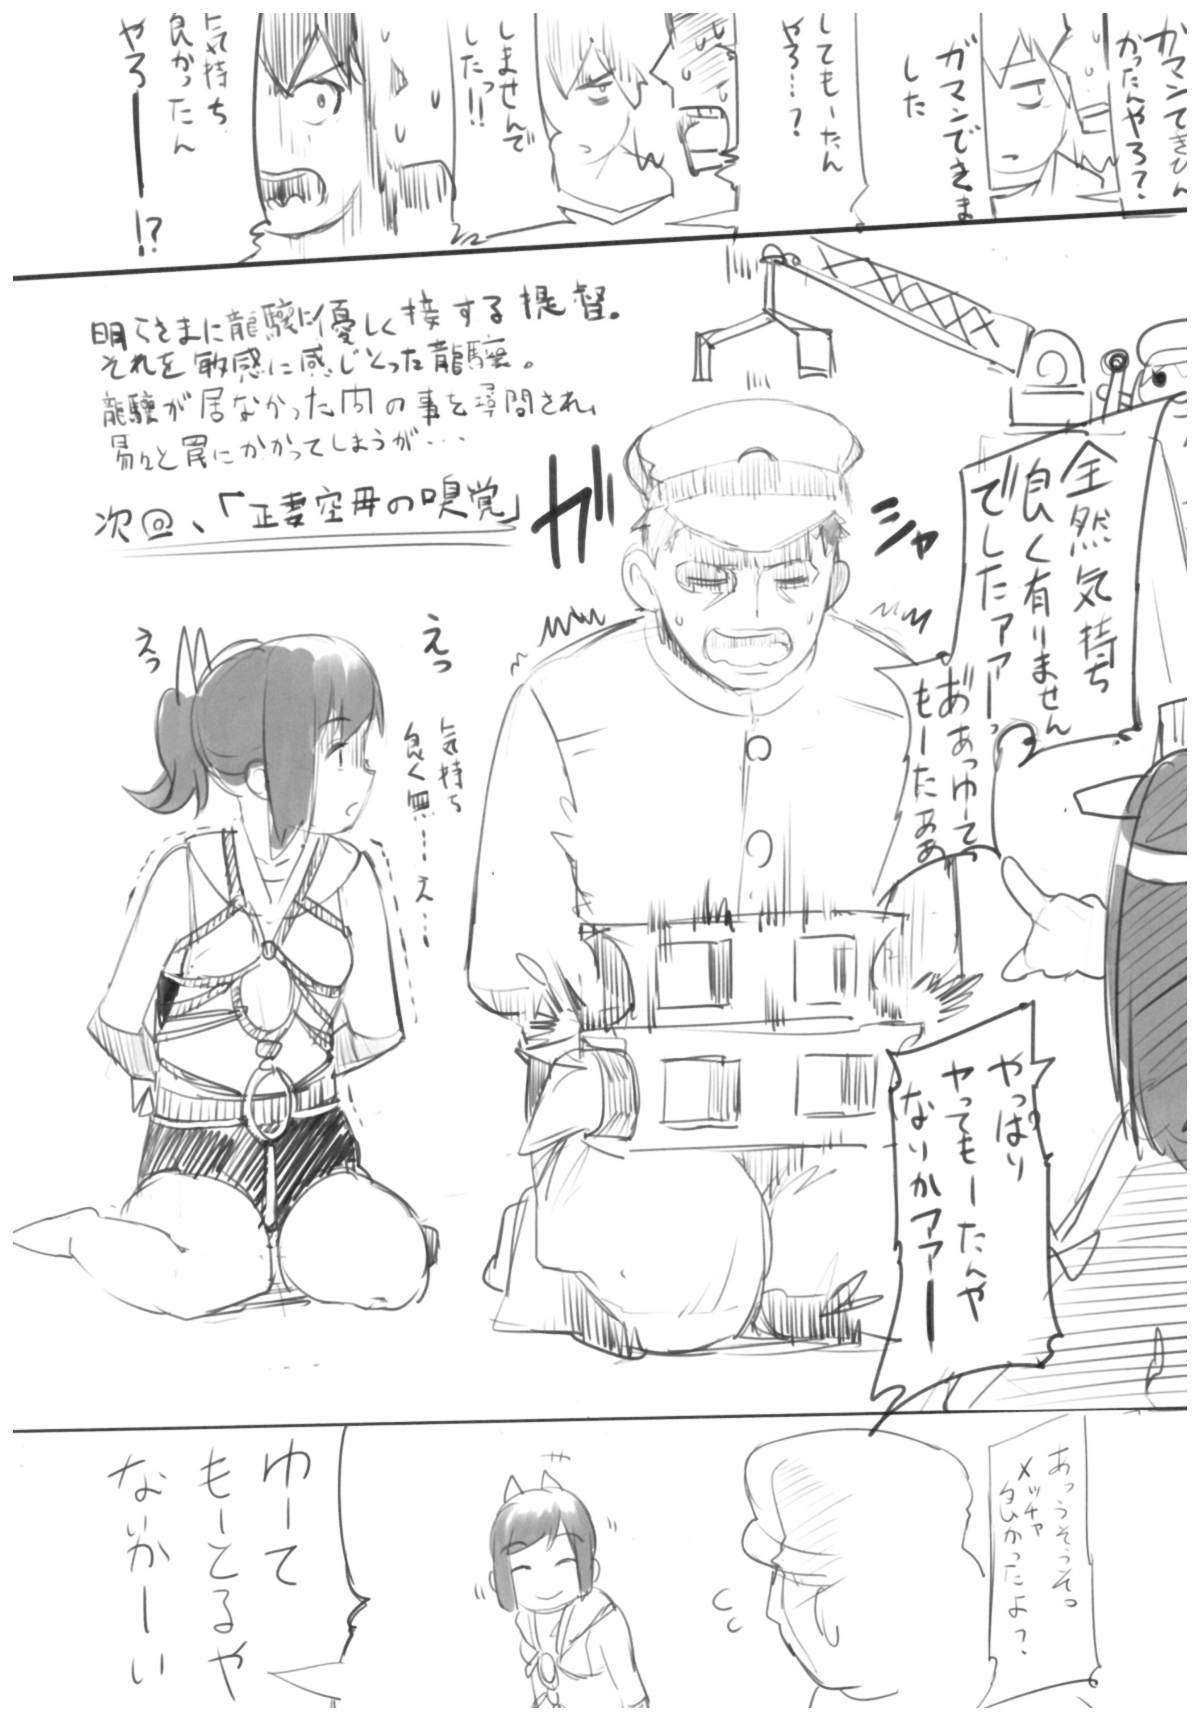 ガマンできひん
かったんやろ?
ガマンできま
した
してもーたん
やろ…?
しませんで
したっ!!
気持ち
良かったん
やろーーー!?
明らさまに龍驤に優しく接する提督。
それを敏感に感じとった龍驤。
龍驤が居なかった間の事を尋問され、
易々と罠にかかってしまうが・・・
次回、「正妻空母の嗅覚」
ガ
シャ
全然気持ち
良く有りません
でしたァァーっ
あ゛あっゆーてっ
もーたぁぁ
えっ
気持ち
良く無…え…
えっ
やっぱり
ヤってもーたんや
ないかァァーー
あっうそうそっ
メッチャ
良かったよ?
ゆーて
もーとるや
ないかーい